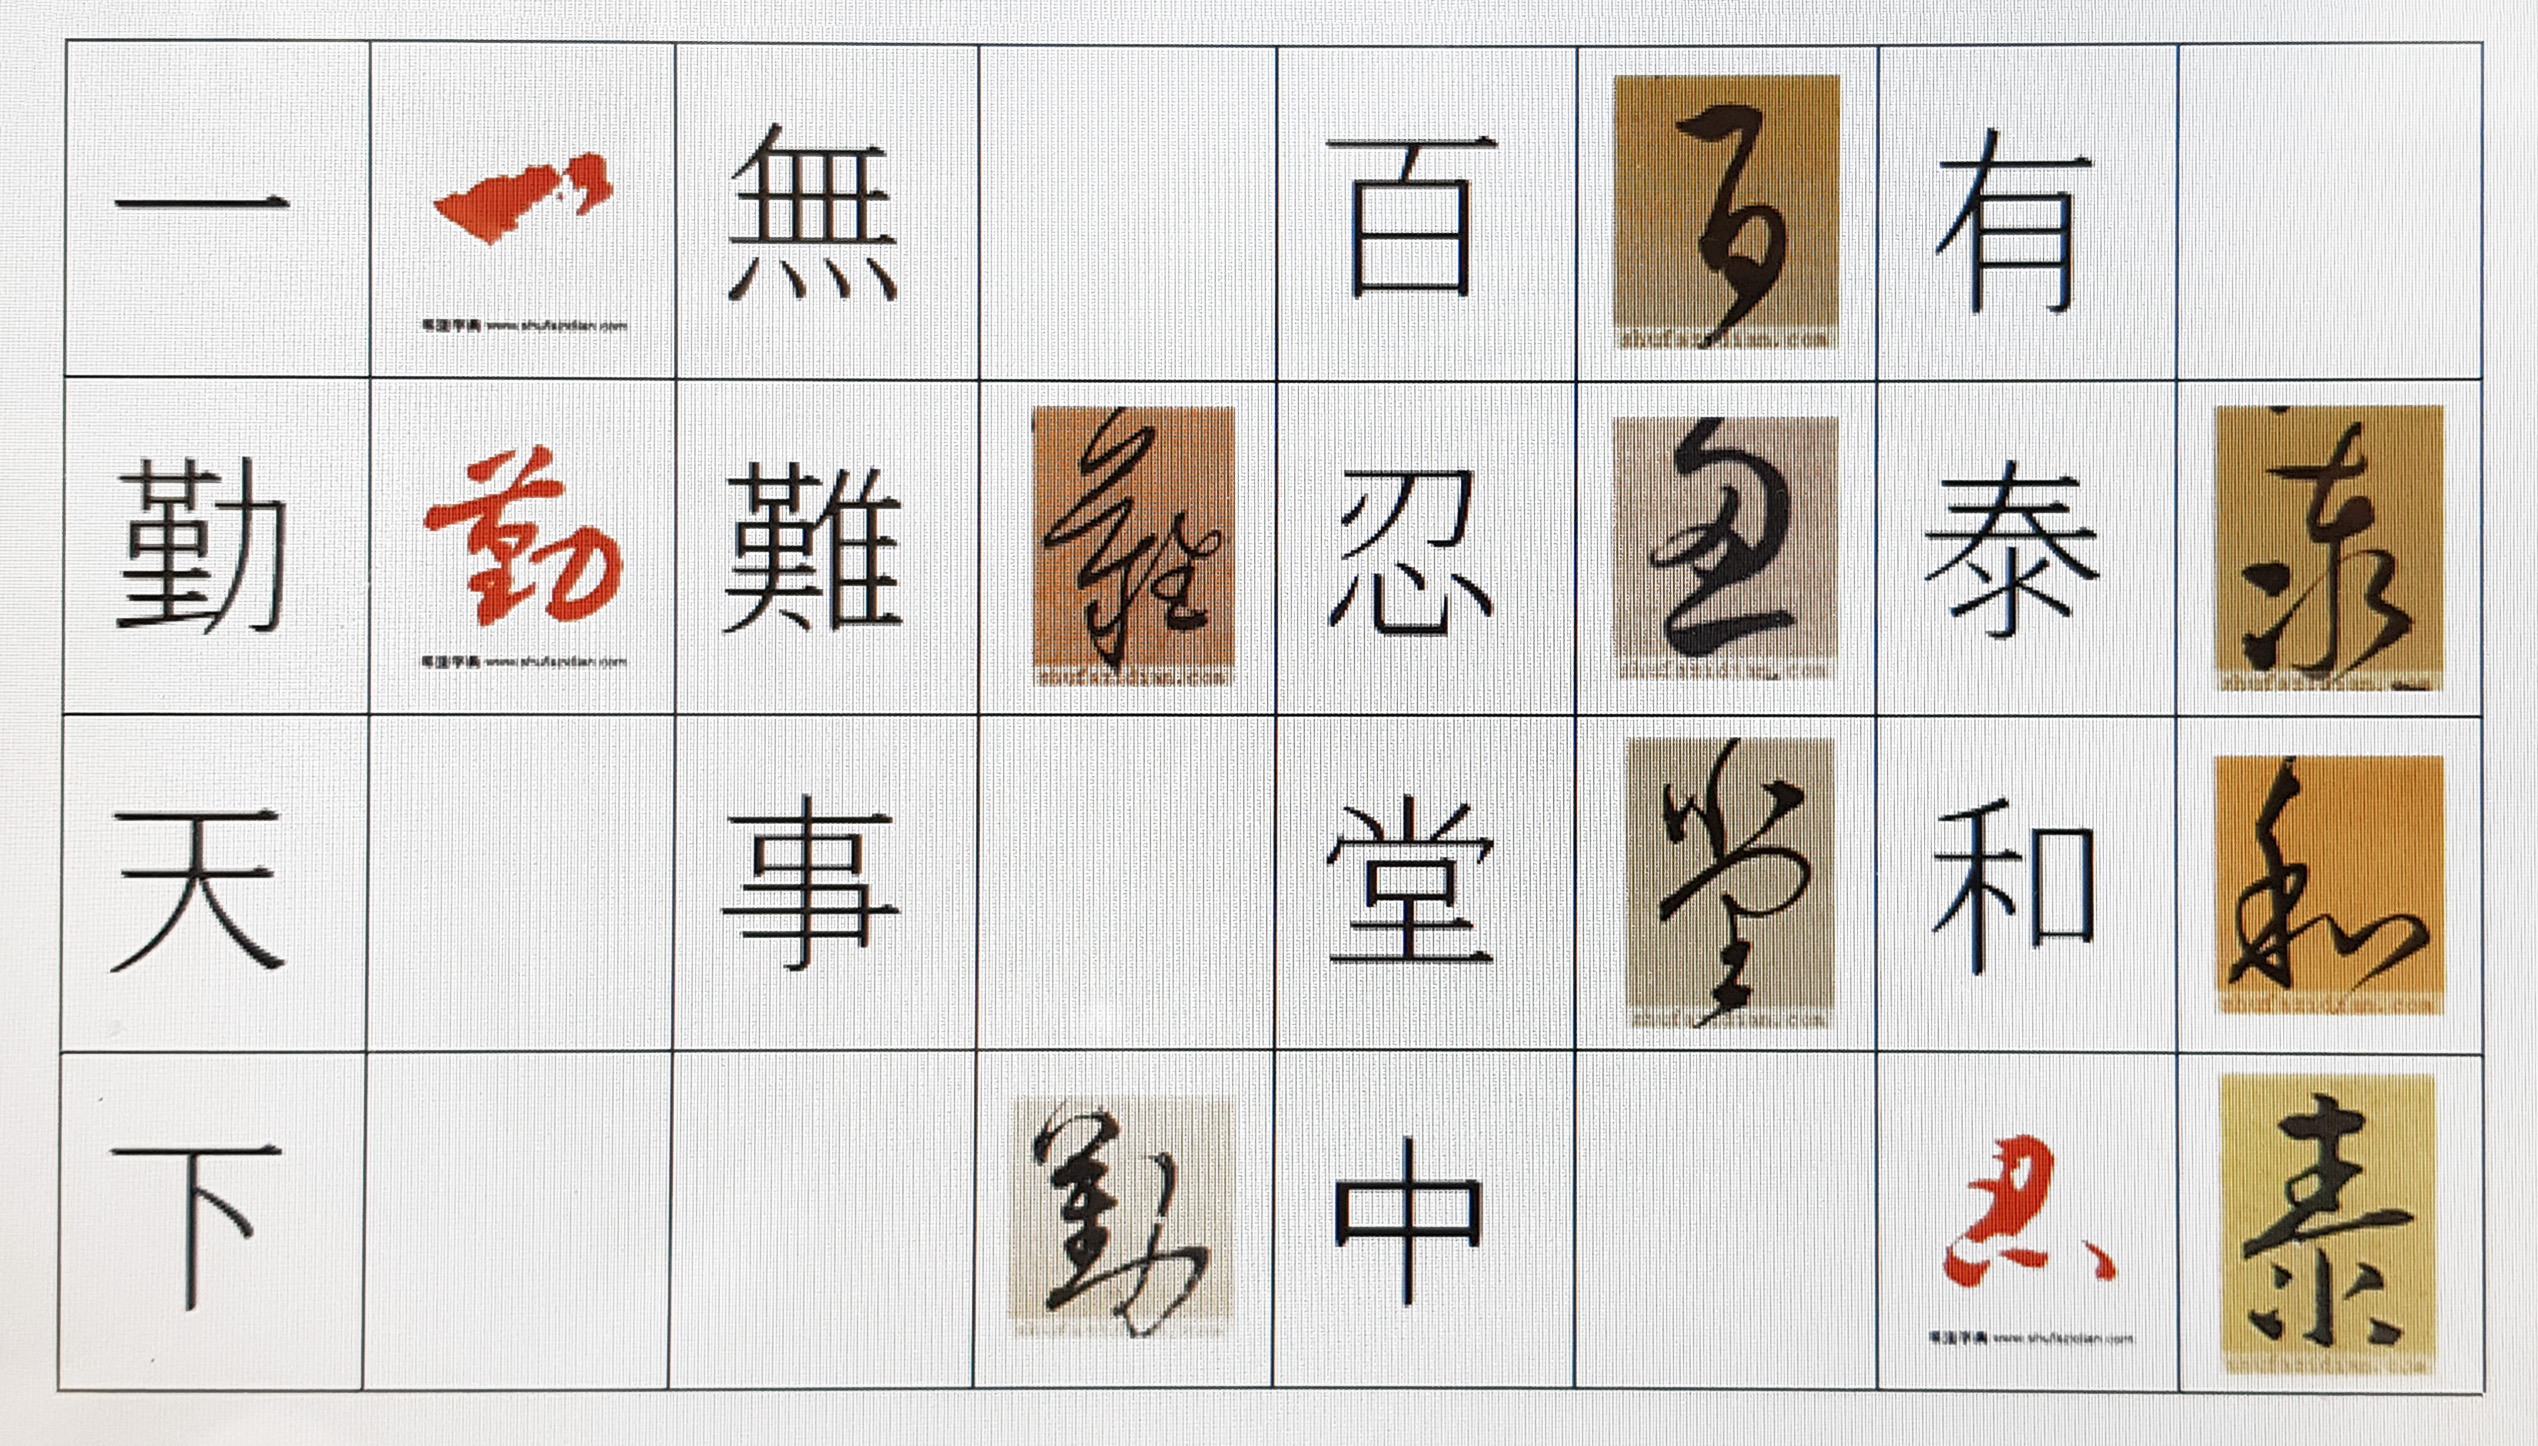 一 一 無 百 百 有
书法字典 www.shufazidian.com shufazidian.com
勤 勤 難 難 忍 忍 泰 泰
书法字典 www.shufazidian.com shufazidian.com shufazidian.com shufazidian.com
天 事 堂 堂 和 和
shufazidian.com shufazidian.com
下 勤 中 忍 泰
shufazidian.com 书法字典 www.shufazidian.com shufazidian.com